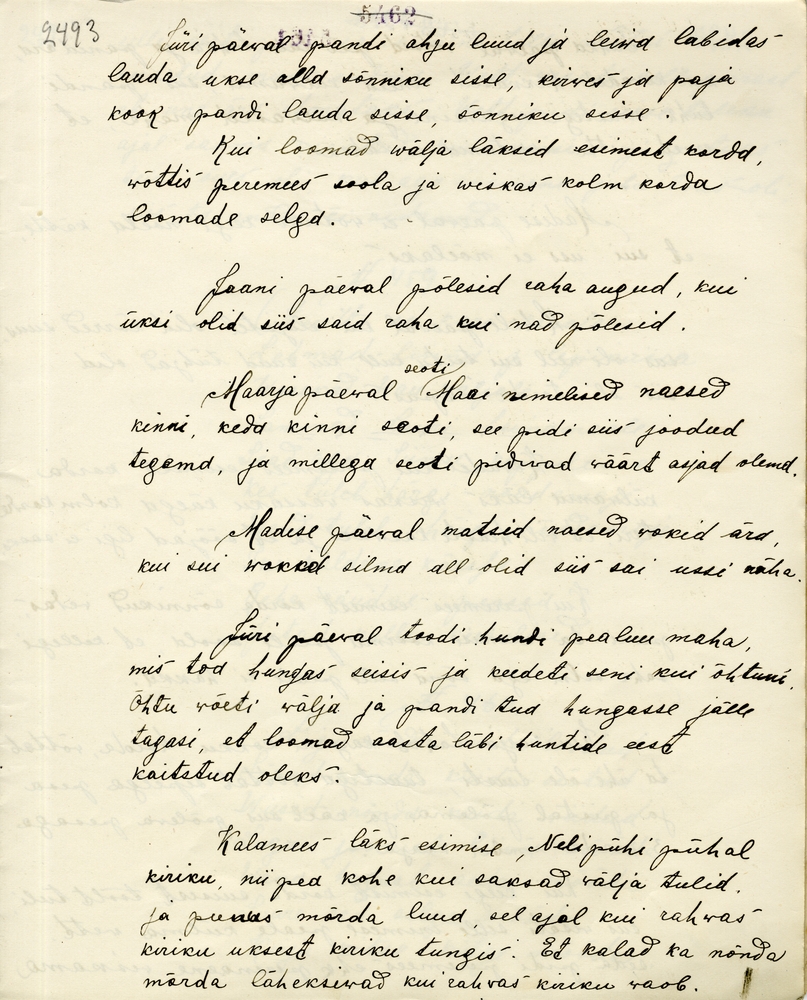 2493
5462
Jüri päewal pandi ahju luud ja leiwa labidas
lauda ukse alla sõnniku sisse, kirwes ja paja
kook pandi lauda sisse, sõnniku sisse.
Kui loomad wälja läksid esimest korda,
wõttis peremees soola ja wiskas kolm korda
loomade selga.
Jaani päewal põlesid raha augud, kui
üksi olid siis said raha kui nad põlesid.
seoti
Maarja päewal Maai nimelised naesed
kinni, keda kinni seoti, see pidi siis joodud
tegema, ja millega seoti pidiwad wäärt asjad olema.
Madise päewal matsid naesed wokid ära,
kui sui wokkid silma all olid siis sai ussi näha.
Jüri päewal toodi hundi pealuu maha,
mis toa hungas seisis ja keedeti seni kui õhtuni.
Õhtu wõeti wälja ja pandi tua hungasse jälle
tagasi, et loomad aasta läbi huntide eest
kaitstud oleks.
Kalamees läks esimise Nelipühi pühal
kiriku, nii pea kohe kui saksad wälja tulid.
ja punus mõrda luud, sel ajal kui rahwas
kiriku uksest kiriku tungis. Et kalad ka nõnda
mõrda läheksiwad kui rahwas kiriku waob.